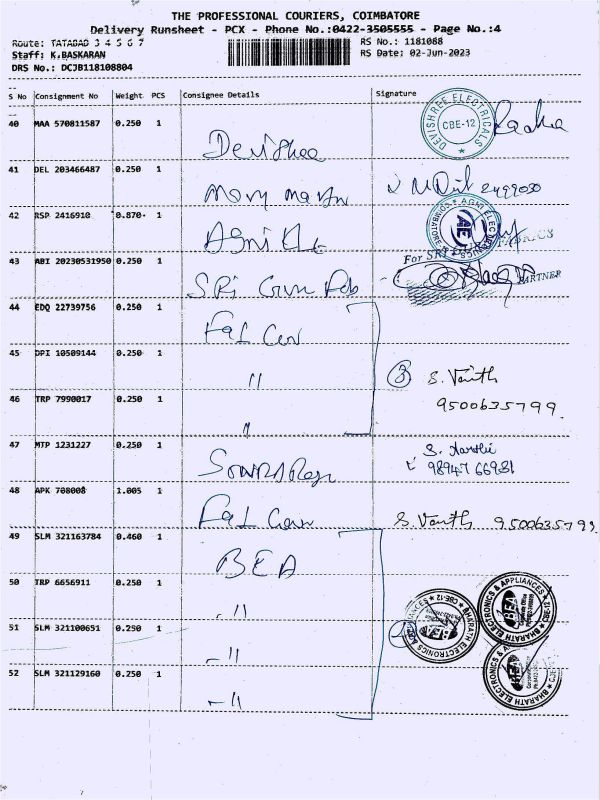 THE PROFESSIONAL COURIERS, COIMBATORE
Delivery Runsheet - PCX - Phone No.:0422-3505555 - Page No.:4
Route: TATABAD 3 4 5 6 7
RS No.: 1181068
Staff: K.BASKARAN
RS Date: 02-Jun-2023
DRS No.: DCJB118108804
S No Consignment No Weight PCS Consignee Details Signature
40 MAA 570811587 0.250 1
DEVISHREE ELECTRICALS
CBE-12
41 DEL 203466487 0.250 1
42 RSP 2416910 0.870 1
Agni
43 ABI 20230531950 0.250 1
For SRI
PARTNER
SRi
44 EDQ 22739756 0.250 1
45 DPI 10509144 0.250 1
"
3 S. Vanith
9500635799.
46 TRP 7990017 0.250 1
"
47 MTP 1231227 0.250 1
98947 66931
48 APK 708008 1.005 1
S. Vanith 9500635799.
49 SLM 321163784 0.460 1
BEA
50 TRP 6656911 0.250 1
- "
BHARATH ELECTRONICS & APPLIANCES
CBE-12
BEA
51 SLM 321100651 0.250 1
- "
52 SLM 321129160 0.250 1
- "